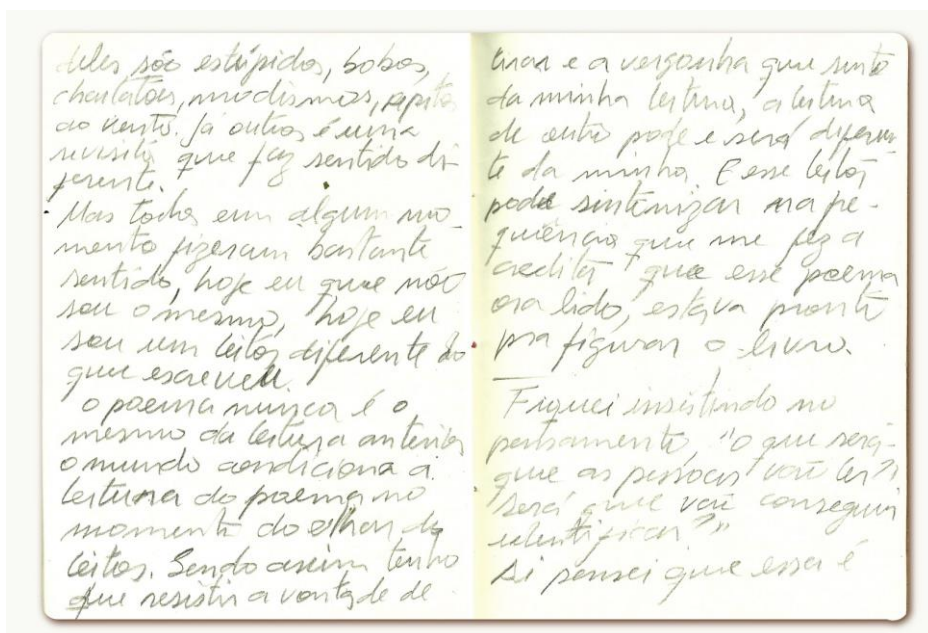 deles são estúpidos, bobos,
charlatões, modismos, 
ao vento. Já outros é uma
revisita que faz sentido di-
ferente.
Mas todos em algum mo-
mento fizeram bastante
sentido, hoje eu que não
sou o mesmo, hoje eu
sou um leitor diferente do
que escreveu.
O poema nunca é o
mesmo da leitura anterior
o mundo condiciona a
leitura do poema no
momento do olhar do
leitor. Sendo assim tenho
que resistir a vontade de
tirar e a vergonha que sinto
da minha leitura, a leitura
de outro pode e será diferen-
te da minha. E esse leitor
pode sintonizar na fre-
quência que me fez a
creditar que esse poema
ora lido, estava pronto
pra figurar o livro.
Fiquei insistindo no
pensamento, "o que será
que as pessoas vão ler?
será que vão conseguir
identificar?"
Aí pensei que essa é